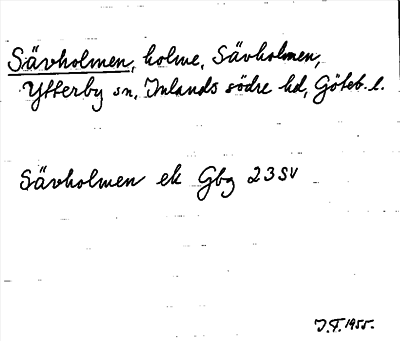 Sävholmen, holme, Sävholmen,
Ytterby sn, Inlands södre hd, Göteb. l.
Sävholmen ek Gbg 23 SV
J.F. 1955.